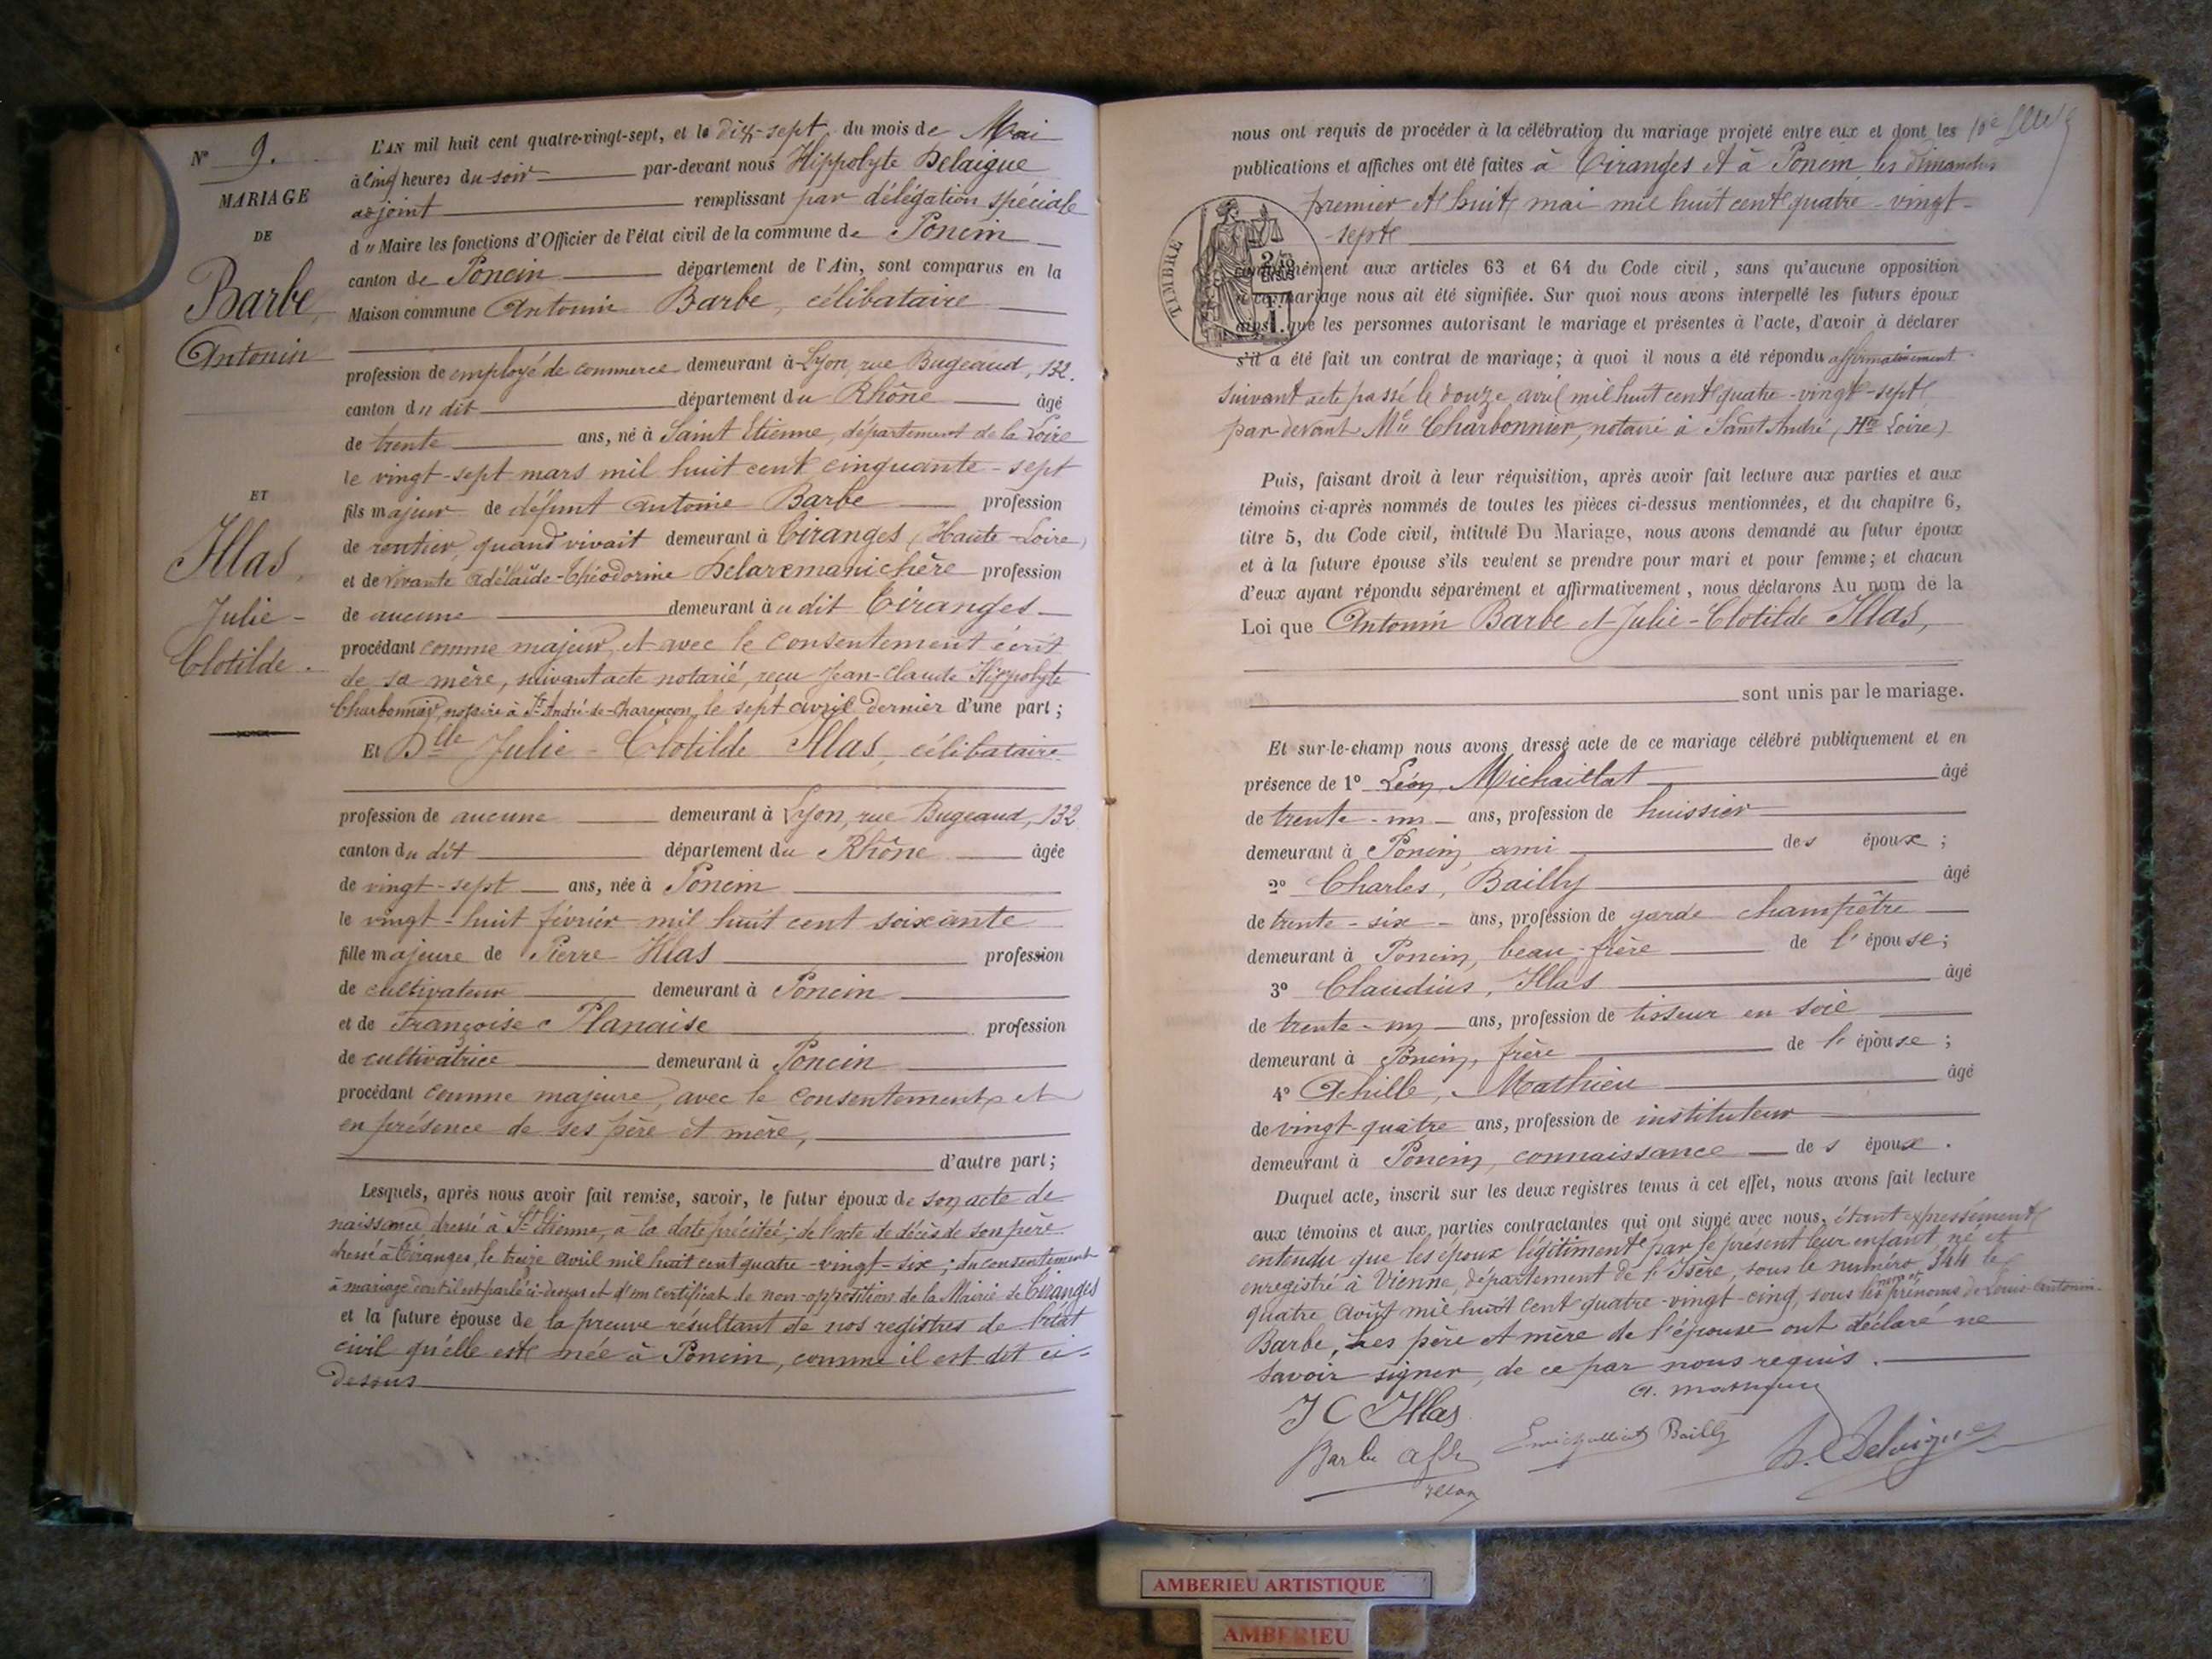 N° 9.
MARIAGE
DE
Barbe,
Antonin
ET
Illas,
Julie-
Clotilde.
L'AN mil huit cent quatre-vingt-sept, et le dix-sept, du mois de Mai
à cinq heures du soir par-devant nous Hippolyte Delaigue
adjoint remplissant par délégation spéciale
d u Maire les fonctions d'Officier de l'état civil de la commune de Poncin
canton de Poncin département de l'Ain, sont comparus en la
Maison commune Antonin Barbe, célibataire
profession de employé de commerce demeurant à Lyon, rue Bugeaud, 132.
canton du dit département du Rhône âgé
de trente ans, né à Saint Etienne, département de la Loire
le vingt-sept mars mil huit cent cinquante-sept
fils majeur de défunt Antoine Barbe profession
de rentier, quand vivait demeurant à Tiranges (Haute-Loire)
et de vivante Adélaïde-Théodorine profession
de aucune demeurant à u dit Tiranges
procédant comme majeur, et avec le consentement écrit
de sa mère, suivant acte notarié, reçu Jean-Claude Hippolyte
Charbonnier, notaire à St André-de-Chalencon, le sept avril dernier d'une part ;
Et Dlle Julie-Clotilde Illas, célibataire
profession de aucune demeurant à Lyon, rue Bugeaud, 132
canton du dit département du Rhône âgée
de vingt-sept ans, née à Poncin
le vingt-huit février mil huit cent soixante
fille majeure de Pierre Illas profession
de cultivateur demeurant à Poncin
et de Françoise Planaise profession
de cultivatrice demeurant à Poncin
procédant comme majeure, avec le consentement et
en présence de ses père et mère,
d'autre part ;
Lesquels, après nous avoir fait remise, savoir, le futur époux de son acte de
naissance dressé à St Etienne, à la date précitée ; de l'acte de décès de son père
dressé à Tiranges, le treize avril mil huit cent quatre-vingt-six ; du consentement
à mariage dont il est parlé ci-dessus et d'un certificat de non-opposition de la Mairie de Tiranges
et la future épouse de la preuve résultant de nos registres de l'état
civil qu'elle est née à Poncin, comme il est dit ci-
dessus
nous ont requis de procéder à la célébration du mariage projeté entre eux et dont les
publications et affiches ont été faites à Tiranges et à Poncin les dimanches
premier et huit mai mil huit cent quatre-vingt-
-sept
TIMBRE
2/10
EN SUS
conformément aux articles 63 et 64 du Code civil, sans qu'aucune opposition
à ce mariage nous ait été signifiée. Sur quoi nous avons interpellé les futurs époux
ainsi que les personnes autorisant le mariage et présentes à l'acte, d'avoir à déclarer
s'il a été fait un contrat de mariage ; à quoi il nous a été répondu affirmativement
suivant acte passé le douze avril mil huit cent quatre-vingt-sept
par devant Me Charbonnier, notaire à Saint André (Hte Loire)
Puis, faisant droit à leur réquisition, après avoir fait lecture aux parties et aux
témoins ci-après nommés de toutes les pièces ci-dessus mentionnées, et du chapitre 6,
titre 5, du Code civil, intitulé Du Mariage, nous avons demandé au futur époux
et à la future épouse s'ils veulent se prendre pour mari et pour femme ; et chacun
d'eux ayant répondu séparément et affirmativement, nous déclarons Au nom de la
Loi que Antonin Barbe et Julie-Clotilde Illas,
sont unis par le mariage.
Et sur-le-champ nous avons dressé acte de ce mariage célébré publiquement et en
présence de 1° Léon Michaillat âgé
de trente-un ans, profession de huissier
demeurant à Poncin ami des époux ;
2° Charles, Bailly âgé
de trente-six ans, profession de garde champêtre
demeurant à Poncin, beau-frère de l'épouse ;
3° Claudius, Illas âgé
de trente-un ans, profession de tisseur en soie
demeurant à Poncin, frère de l'épouse ;
4° Achille, Mathieu âgé
de vingt-quatre ans, profession de instituteur
demeurant à Poncin, connaissance de s époux.
Duquel acte, inscrit sur les deux registres tenus à cet effet, nous avons fait lecture
aux témoins et aux parties contractantes qui ont signé avec nous, étant expressément
entendu que les époux légitiment par le présent leur enfant né et
enregistré à Vienne, département de l'Isère, sous le numéro 344 le
quatre août mil huit cent quatre-vingt-cinq, sous les nom et prénoms de Louis Antonin
Barbe, Les père et mère de l'épouse ont déclaré ne
savoir signer, de ce par nous requis.
J C Illas
Barbe
Illas
Bailly
H. Delaigue
AMBERIEU ARTISTIQUE
AMBERIEU